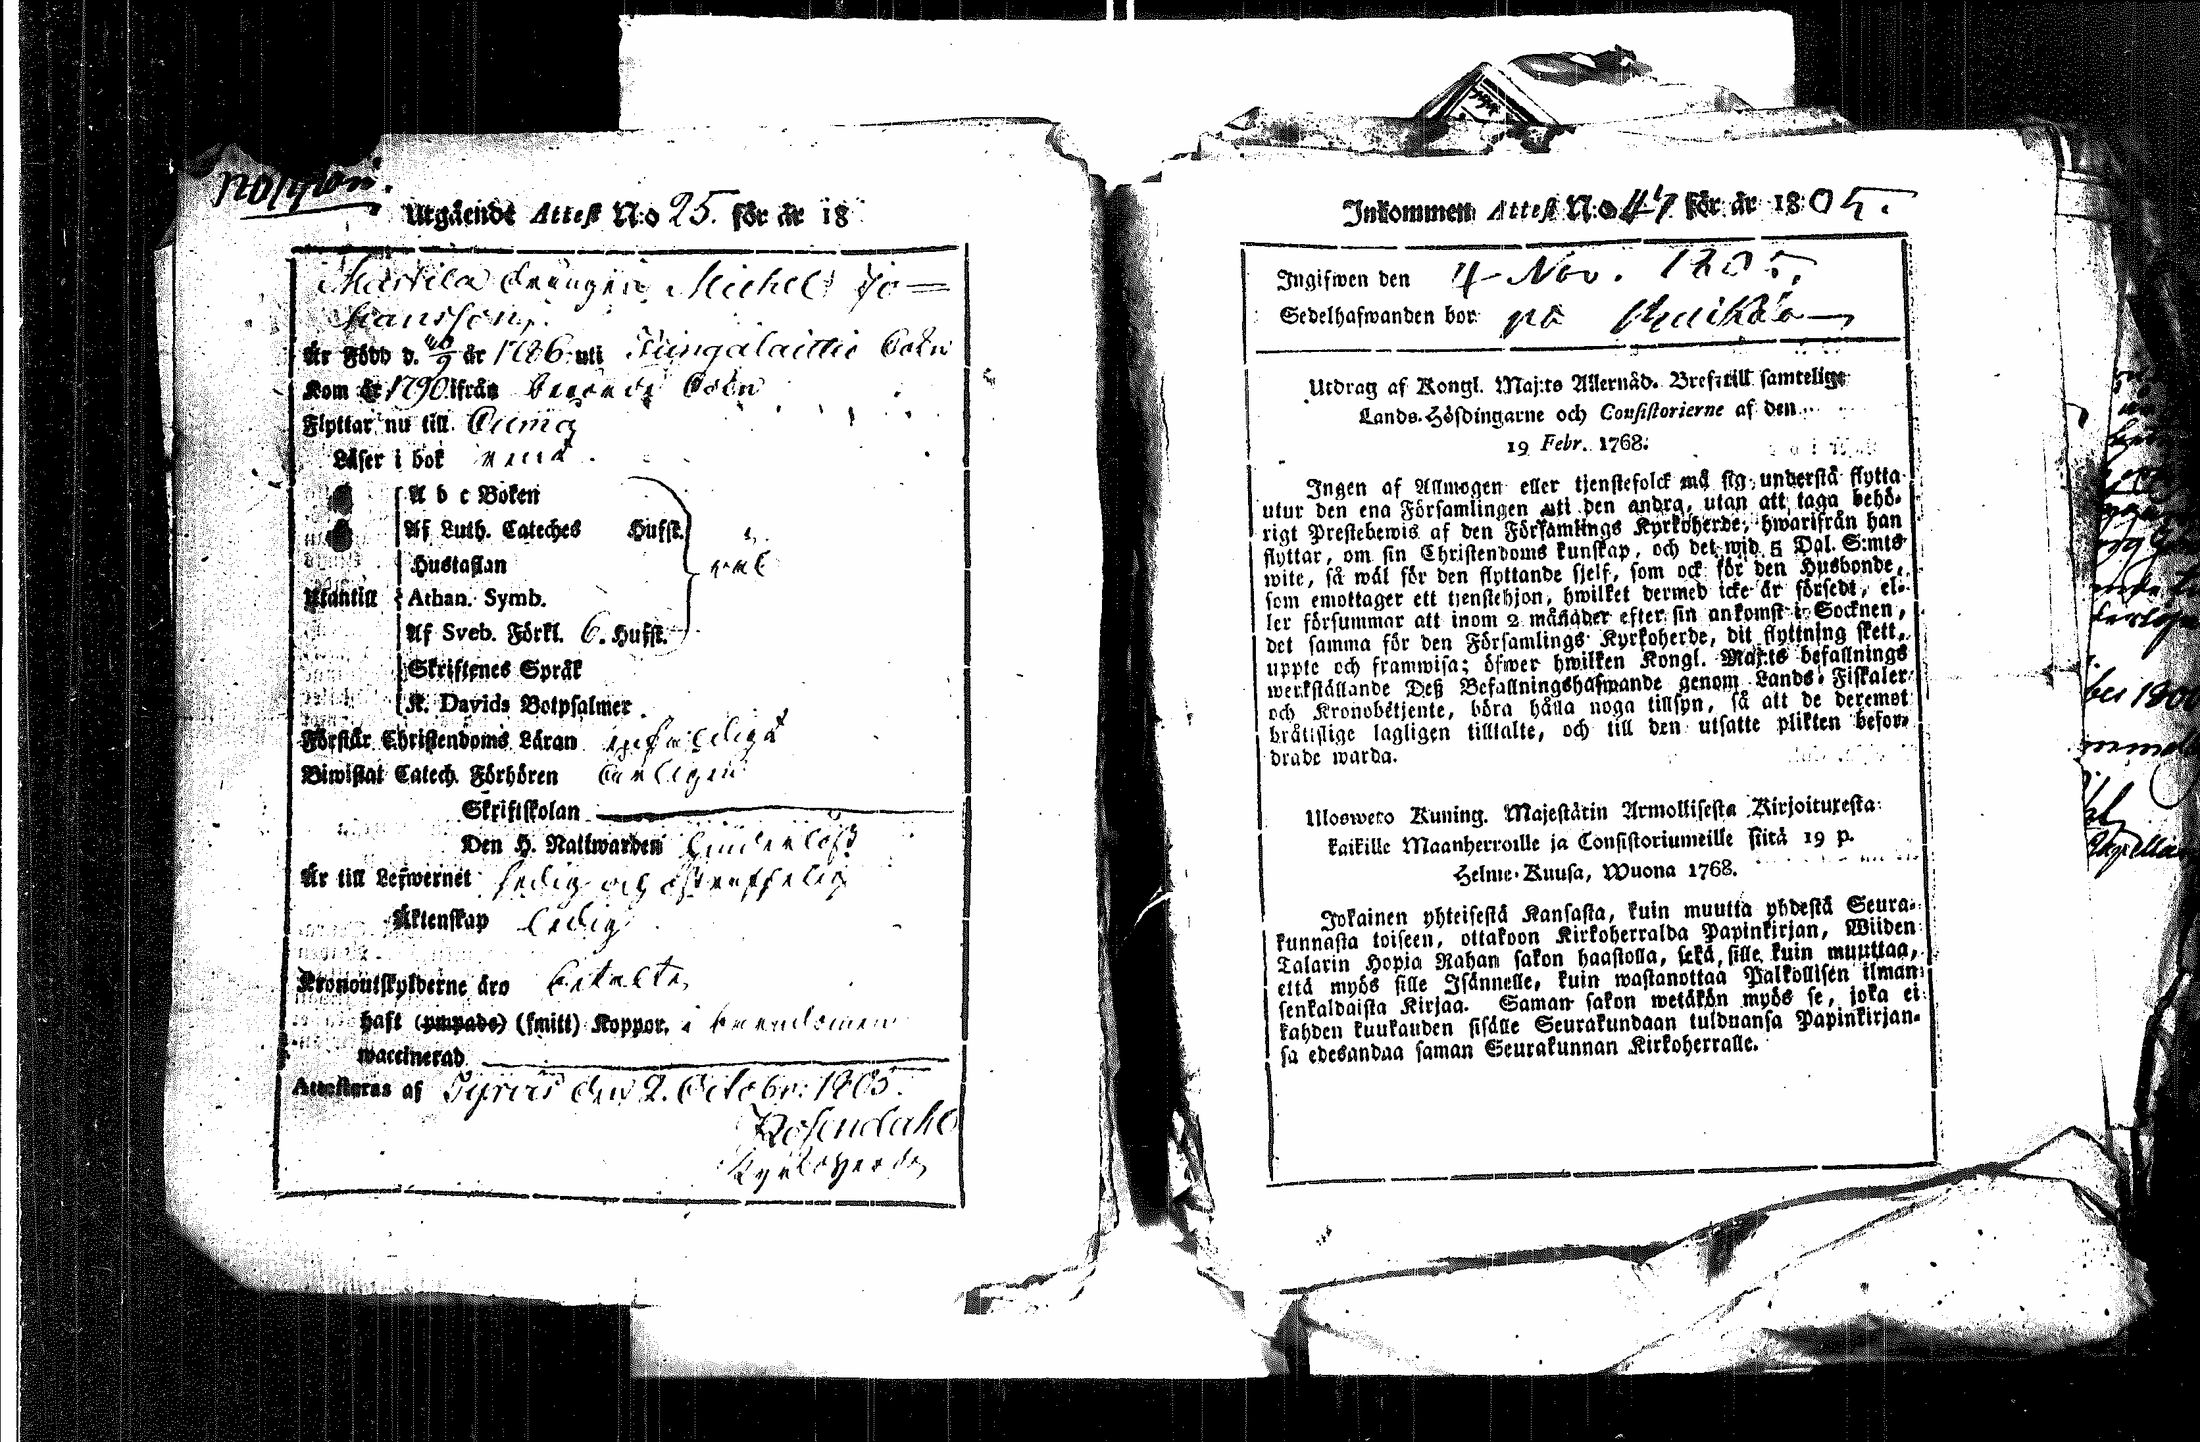 Utgående Attest N:o 25. för år 18
Martila drängen Michel Jo=
hansson,
Är Född d. 29/9 år 1786 uti Pungalaittio Sokn
Kom år 1790 ifrån berörde Sokn
Flyttar nu till Cumo
Läser i bok rent
A b c Boken
Af Luth. Cateches Hufst.
Hustaflan
Utantill Athan. Symb.
väl
Af Sveb. Förkl. 6. Hufst.
Skriftenes Språk
K. Davids Botpsalmer
Förstår Christendoms Läran enfaldigt
Biwistat Catech. Förhören årligen
Skriftskolan
Den H. Nattwarden hinderlöst
Är till Lefwernet sedig och ostraffelig
Äktenskap ledig
Kronoutskylderne äro betalte
haft (ympade) (smitt) Koppor, i barndomen
waccinerad
Attesteras af Tyrvis den 2. Octobr: 1805.
Rosendahl
Kyrkoherde
Inkommen Attest N:o 47 för år 1805.
Ingifwen den 4 Nov. 1805.
Sedelhafwanden bor på
Utdrag af Kongl. Maj:ts Allernåd. Bref till samtelige
Lands-Höfdingarne och Consistorierne af den
19 Febr. 1768.
Ingen af Allmogen eller tjenstefolck må sig understå flytta
utur den ena Församlingen uti den andra, utan att taga behö-
rigt Prestebewis af den Församlings Kyrkoherde, hwarifrån han
flyttar, om sin Christendoms kunskap, och det wid 5 Dal. S:mts
wite, så wäl för den flyttande sjelf, som ock för den Husbonde,
som emottager ett tjenstehjon, hwilket dermed icke är försedt, el-
ler försummar att inom 2 månader efter sin ankomst i Socknen,
det samma för den Församlings Kyrkoherde, dit flyttning skett,
uppte och framwisa; öfwer hwilken Kongl. Maj:ts befallnings
werkställande Deß Befallningshafwande genom Lands-Fiskaler
och Kronobetjente, böra hålla noga tillsyn, så att de deremot
brätslige lagligen tilltalte, och till den utsatte plikten befor-
drade warda.
Ulosweto Kuning. Majestätin Armollisesta Kirjoituxesta
kaikille Maanherroille ja Consistoriumeille siitä 19 p.
Helme-Kuusa, Wuona 1768.
Jokainen yhteisestä Kansasta, kuin muutta yhdestä Seura-
kunnasta toiseen, ottakoon Kirkoherralda Papinkirjan, Wiiden
Talarin Hopia Rahan sakon haastolla, sekä sille kuin muuttaa,
että myös sille Isännelle, kuin wastanottaa Palkollisen ilman
senkaldaista Kirjaa. Saman sakon wetäkön myös se, joka ei
kahden kuukauden sisälle Seurakundaan tulduansa Papinkirjan-
sa edesandaa saman Seurakunnan Kirkoherralle.